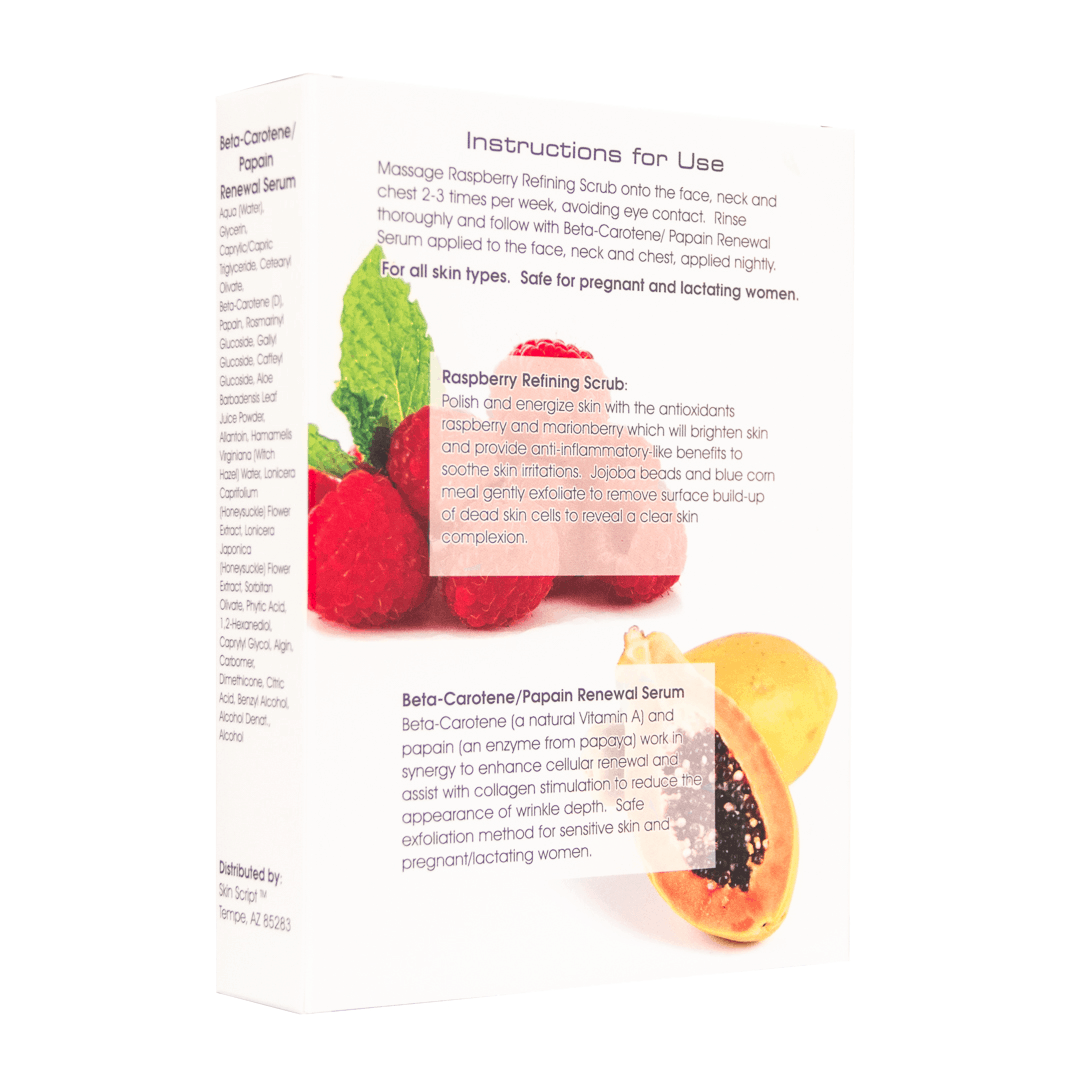 Beta-Carotene/
Papain
Renewal Serum
Aqua (Water),
Glycerin,
Caprylic/Capric
Triglyceride, Cetearyl
Olivate,
Beta-Carotene (D),
Papain, Rosmarinyl
Glucoside, Gallyl
Glucoside, Caffeyl
Glucoside, Aloe
Barbadensis Leaf
Juice Powder,
Allantoin, Hamamelis
Virginiana (Witch
Hazel) Water, Lonicera
Caprifolium
(Honeysuckle) Flower
Extract, Lonicera
Japonica
(Honeysuckle) Flower
Extract, Sorbitan
Olivate, Phytic Acid,
1,2-Hexanediol,
Caprylyl Glycol, Algin,
Carbomer,
Dimethicone, Citric
Acid, Benzyl Alcohol,
Alcohol Denat.,
Alcohol
Distributed by:
Skin Script ™
Tempe, AZ 85283
Instructions for Use
Massage Raspberry Refining Scrub onto the face, neck and
chest 2-3 times per week, avoiding eye contact. Rinse
thoroughly and follow with Beta-Carotene/ Papain Renewal
Serum applied to the face, neck and chest, applied nightly.
For all skin types. Safe for pregnant and lactating women.
Raspberry Refining Scrub:
Polish and energize skin with the antioxidants
raspberry and marionberry which will brighten skin
and provide anti-inflammatory-like benefits to
soothe skin irritations. Jojoba beads and blue corn
meal gently exfoliate to remove surface build-up
of dead skin cells to reveal a clear skin
complexion.
Beta-Carotene/Papain Renewal Serum
Beta-Carotene (a natural Vitamin A) and
papain (an enzyme from papaya) work in
synergy to enhance cellular renewal and
assist with collagen stimulation to reduce the
appearance of wrinkle depth. Safe
exfoliation method for sensitive skin and
pregnant/lactating women.